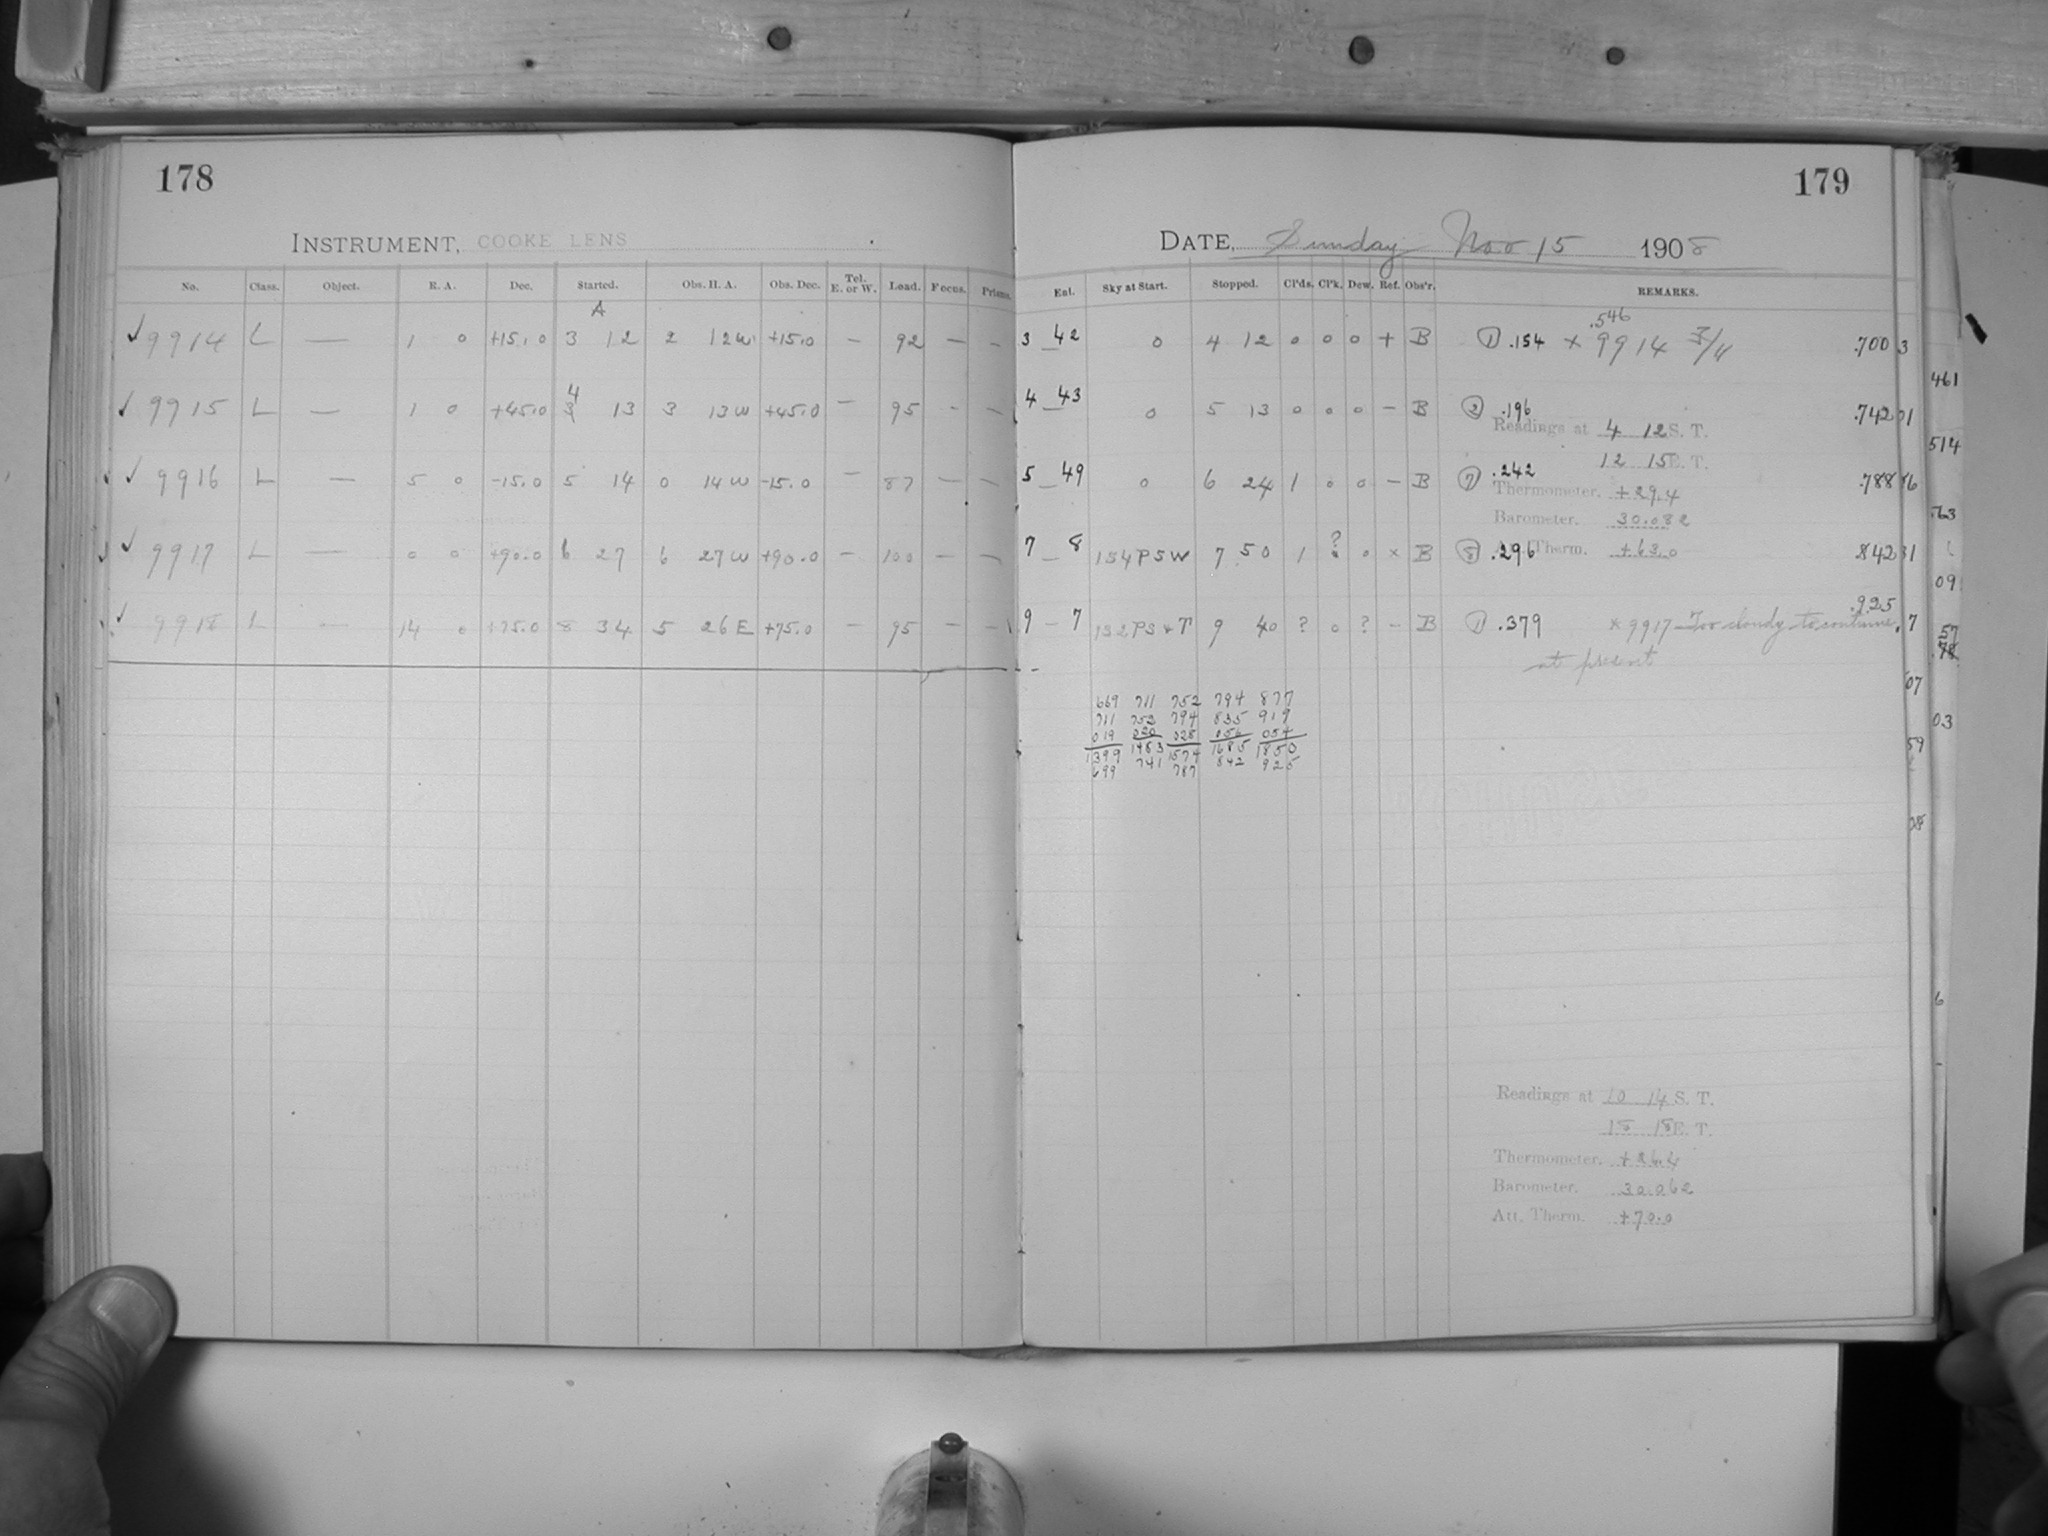 178
179
INSTRUMENT, COOKE LENS
DATE, Sunday Nov 15 1908
No. Class. Object. R. A. Dec. Started. Obs. H. A. Obs. Dec. Tel. E. or W. Load. Focus. Prisms. Ent. Sky at Start. Stopped. Cl'ds. Cl'k. Dew. Ref. Obs'r. REMARKS.
A
.546
✓ 9914 L — 1 0 +15.0 3 12 2 12W +15.0 — 92 — — 3 42 0 4 12 0 0 0 + B ① .154 × 9914 .700 3
461
4
✓ 9915 L — 1 0 +45.0 3 13 3 13W +45.0 — 95 - — 4 43 0 5 13 0 0 0 — B ② .196 .742 01
Readings at 4 12 S. T.
514
12 15 E. T.
✓ 9916 L — 5 0 -15.0 5 14 0 14W -15.0 — 87 — — 5 49 0 6 24 1 0 0 — B ⑦ .242 .788 16
Thermometer. +29.4
Barometer. 30.082
.63
?
✓ 9917 L — 0 0 +90.0 6 27 6 27W +90.0 — 100 — — 7 8 154PSW 7 50 1 0 0 × B ⑧ .296 .842 31
Att. Therm. +63.0
09
.925
✓ 9918 L — 14 0 +75.0 8 34 5 26E +75.0 — 95 — — 9 7 132PS+T 9 40 ? 0 ? — B ① .379 × 9917 Too cloudy to continue .7
57
78
at present
07
669 711 752 794 877
711 752 794 835 919
03
019 020 028 056 054
1399 1483 1574 1685 1850
59
699 741 787 842 925
08
6
Readings at 10 14 S. T.
18 18 E. T.
Thermometer. +26.4
Barometer. 30.062
Att. Therm. +70.0